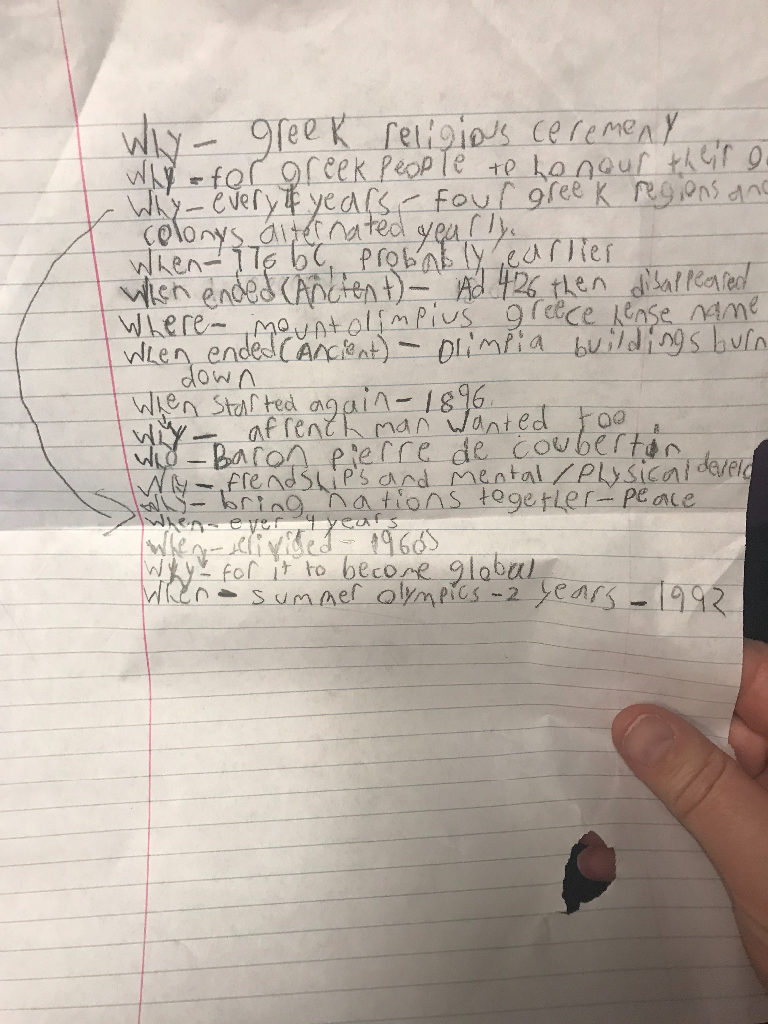 Why - greek religious ceremeny
Why - for greek people to honour their
Why - every 4 years - four greek regions and
colonys alternated yearly.
When - 776 bC, probably earlier
When ended (Ancient) - Ad 426 then disappeared
Where - mount olimpius greece hense name
When ended (Ancient) - Olimpia buildings burn
down
When started again - 1896.
Why - a french man wanted too
Who - Baron pierre de coubertin
Why - frendships and mental / physical develo
Why - bring nations together - peace
When - ever 4 years
When - - 1960s
Why - for it to become global
When - summer olympics - 2 years - 1992